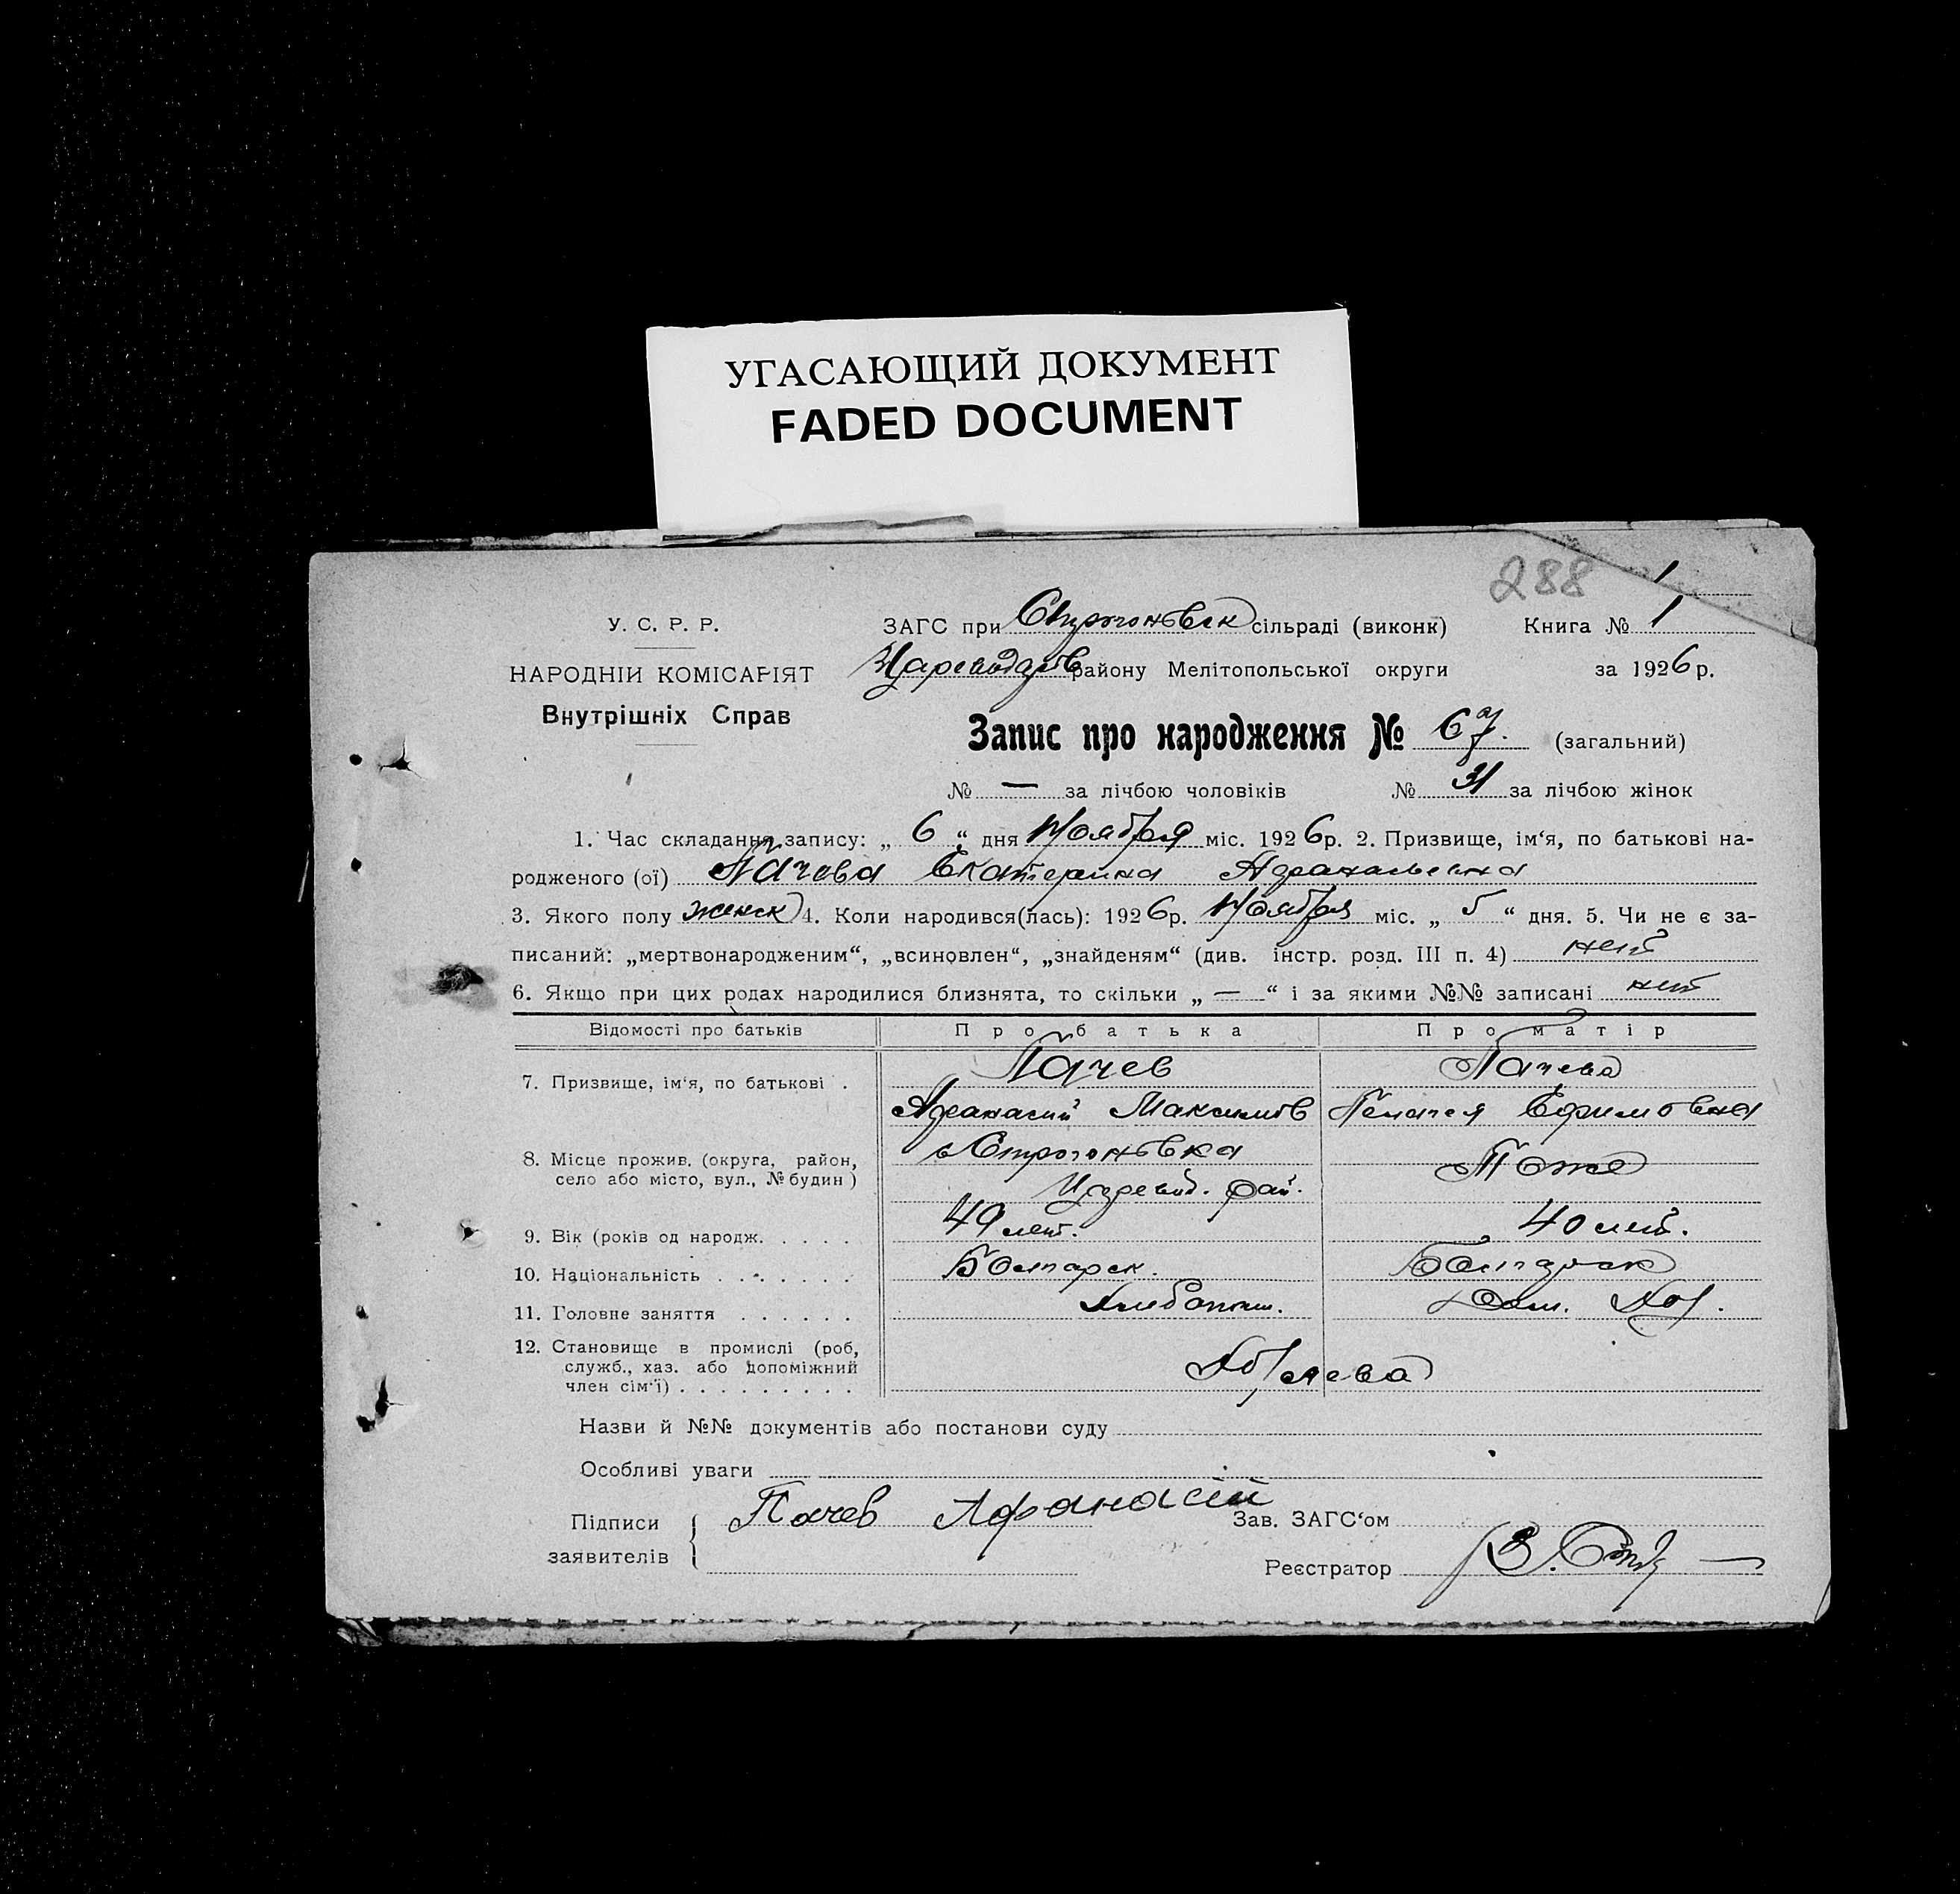 УГАСАЮЩИЙ ДОКУМЕНТ
FADED DOCUMENT
288
У. С. Р. Р.
НАРОДНІЙ КОМІСАРІЯТ
Внутрішніх Справ
ЗАГС при Строгоновск сільраді (виконк)
Книга № 1
району Мелітопольської округи
за 1926 р.
Запис про народження № 67. (загальний)
№ — за лічбою чоловіків № 31 за лічбою жінок
1. Час складання запису: „ 6 “ дня Ноября міс. 1926 р. 2. Призвище, ім‘я, по батькові на-
родженого (ої) Пачева Екатерина Афанасьевна
3. Якого полу женск 4. Коли народився(лась): 1926 р. Ноября міс. „ 5 “ дня. 5. Чи не є за-
писаний: „мертвонародженим“, „всиновлен“, „знайденям“ (див. інстр. розд. III п. 4) нет
6. Якщо при цих родах народилися близнята, то скільки „ — “ і за якими №№ записані нет
Відомості про батьків Про батька Про матір
7. Призвище, ім‘я, по батькові . Пачев Пачева
Афанасий Максимов Пелагея Ефимовна
8. Місце прожив. (округа, район, село або місто, вул., № будин) с Строгоновка Тоже
Царевод. рай.
9. Вік (років од народж. . . . . 49 лет. 40 лет.
10. Національність . . . . . . . Болгарск. Болгарск
11. Головне заняття . . . . . . Хлебопаш. Дом. Хоз.
12. Становище в промислі (роб,
служб., хаз. або допоміжний
член сім‘ї) . . . . . . . . . Хозяева
Назви й №№ документів або постанови суду
Особливі уваги
Підписи
заявителів
Пачев Афанасій
Зав. ЗАГС‘ом
Реєстратор